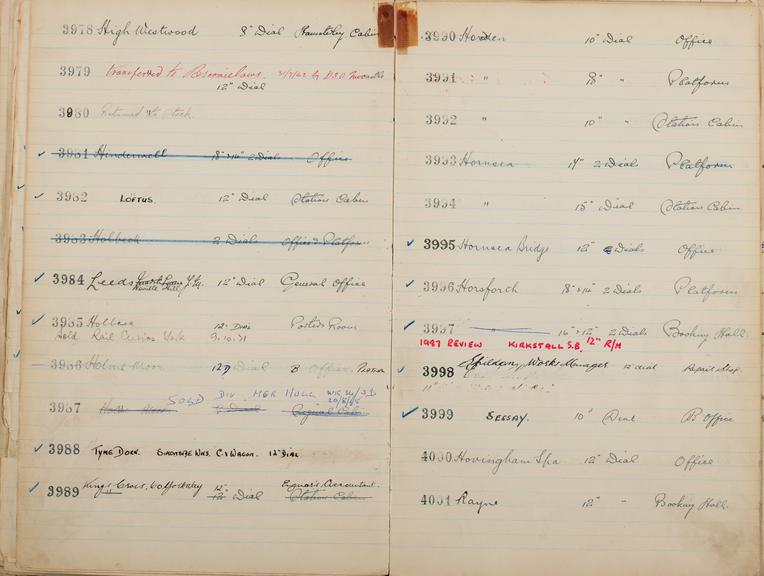 3978 High Westwood 8" Dial Hamsterley Cabin
3979 transferred to 2/7/42 by D.S.O. Newcastle
12" Dial
3980 Returned to Stock
3981 Hinderwell 18" x 14" 2 Dials Office
3982 LOFTUS. 12" Dial Station Cabin
3983 Holbeck 2 Dials Office & Platform
3984 Leeds 12" Dial General Office
3985 Holbeck 12" Dial Porter's Room
Sold Rail Curios York 9.10.71
3986 Holme Moor 12" Dial B Office
SOLD DIV MGR HULL
20/8/68
3987 Holme Moor Dial Signal Cabin
3988 TYNE DOCK. C & WAGON. 12" DIAL
3989 King's Cross, 12" Engnr's Accountant.
12" Dial Station Cabin
3990 Horden 10" Dial Office
3991 " 18" " Platform
3992 " 10" " Station Cabin
3993 Hornsea 14" 2 Dials Platform
3994 " 15" Dial Station Cabin
3995 Hornsea Bridge 12" Dials Office
3996 Horsforth 18" x 14" 2 Dials Platform
3997 " 16" x 12" 2 Dials Booking Hall.
1987 REVIEW KIRKSTALL S.B. 12" R/H
3998 Shildon, Works Manager 12" dial Repair Shop.
3999 SEESSAY. 10" Dial B. Office
4000 Hovingham Spa 12" Dial Office
4001 Rayne 12" " Booking Hall.